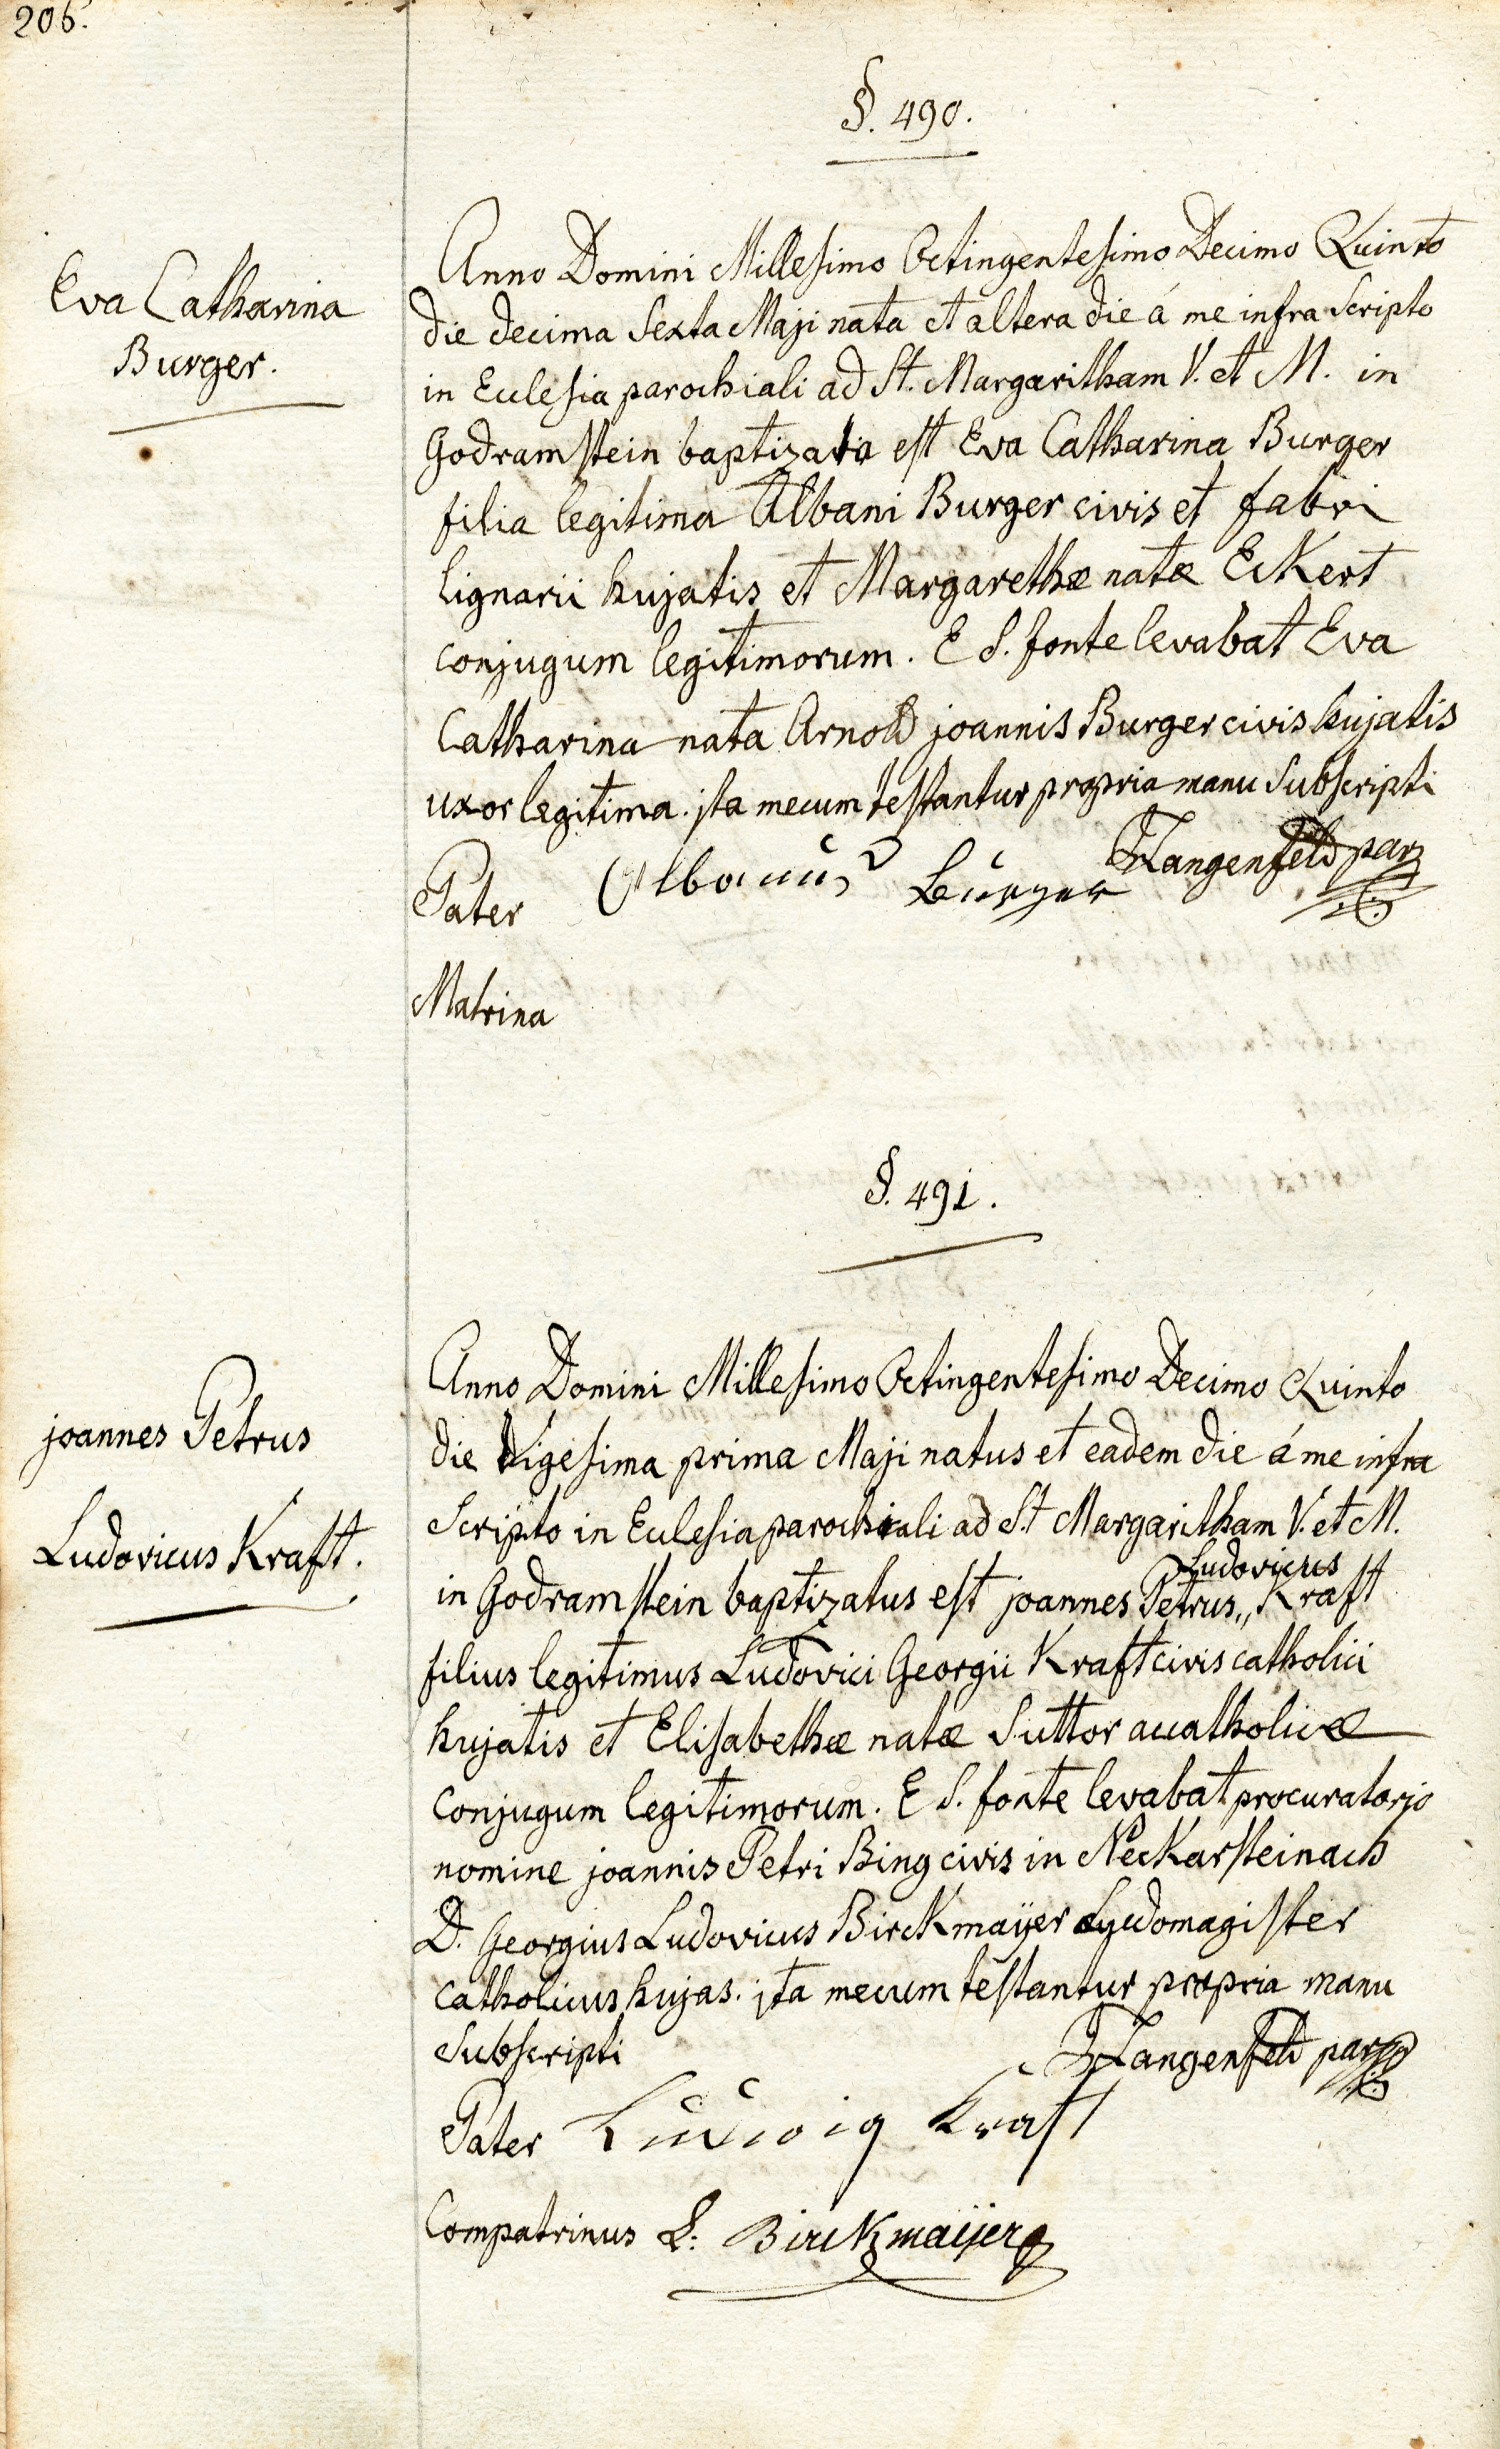 206.
§. 490.
Eva Catharina
Burger.
Anno Domini Millesimo Octingentesimo Decimo Quinto
die decima Sexta Maji nata et altera die á me infra Scripto
in Ecclesia parochiali ad St. Margaritham V. et M. in
Godramstein baptizata est Eva Catharina Burger
filia legitima Albani Burger civis et fabri
lignarii hujatis et Margarethæ natæ Eckert
conjugum legitimorum. E S. fonte levabat Eva
Catharina nata Arnold joannis Burger civis hujatis
uxor legitima. jta mecum testantur propria manu Subscripti
Langenfeld par
Pater Albanus Burger
Matrina
§. 491.
joannes Petrus
Ludovicus Kraft.
Anno Domini Millesimo Octingentesimo Decimo Quinto
die Vigesima prima Maji natus et eadem die á me infra
Scripto in Ecclesia parochiali ad St Margaritham V. et M.
Ludovicus
in Godramstein baptizatus est joannes Petrus,, Kraft
filius legitimus Ludovici Georgii Kraft civis catholici
hujatis et Elisabethæ natæ Suttor acatholicæ
conjugum legitimorum. E S. fonte levabat procuratorjo
nomine joannis Petri Bing civis in Neckarsteinach
D. Georgius Ludovicus Birckmaÿer Lydomagister
catholicus hujas. jta mecum testantur propria manu
Subscripti
Langenfeld par
Pater Ludwig Kraft
Compatrinus L: Birckmaÿer